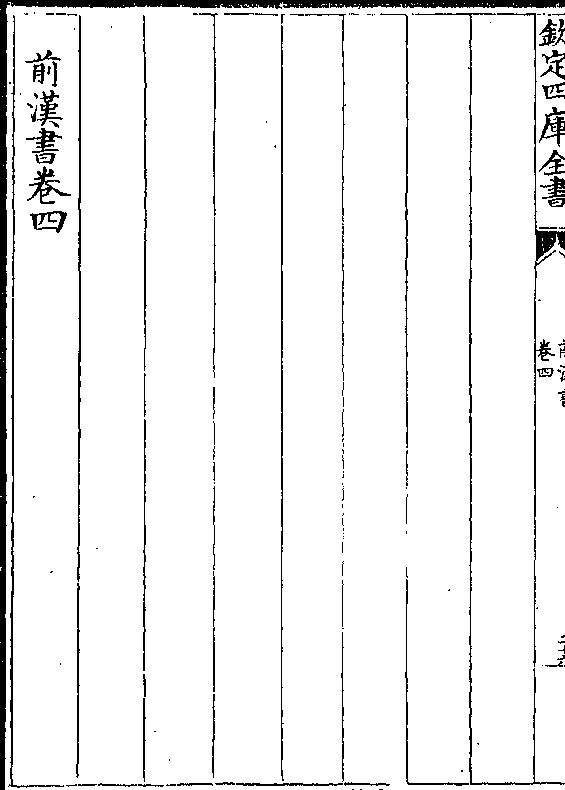 欽定四庫全書
前漢書
卷四
前漢書卷四